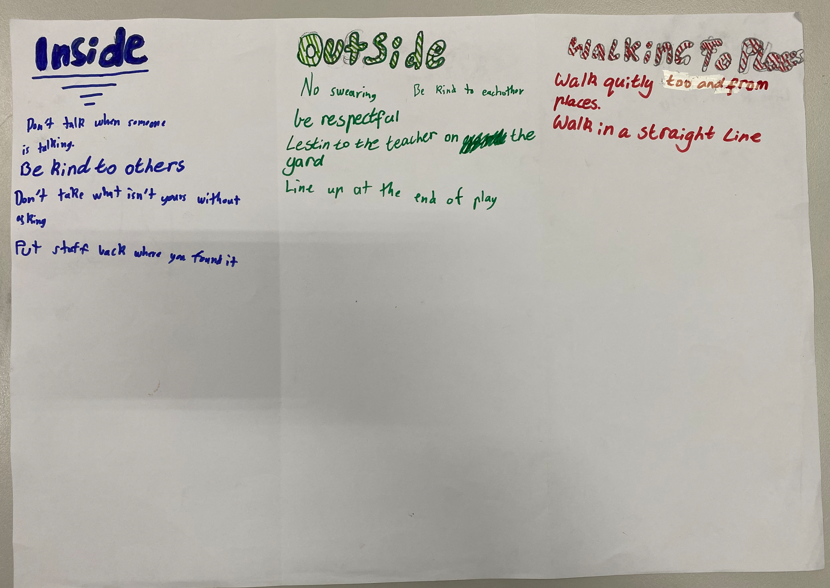 Inside
Don't talk when someone
is talking.
Be kind to others
Don't take what isn't yours without
asking
Put stuff back where you found it
Outside
No swearing    Be kind to eachother
be respectful
Lestin to the teacher on the
yard
Line up at the end of play
Walking To Places
Walk quitly too and from
places.
Walk in a straight Line